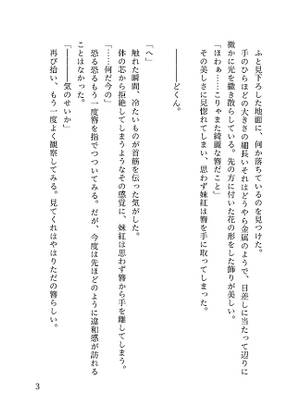 ふと見下ろした地面に、何か落ちているのを見つけた。
手のひらほどの大きさの細長いそれはどうやら金属のようで、日差しに当たって辺りに
微かに光を撒き散らしている。先の方に付いた花の形をした飾りが美しい。
「ほわぁ……こりゃまた綺麗な簪だこと」
その美しさに見惚れてしまい、思わず妹紅は簪を手に取ってしまった。
――――どくん。
「へ」
触れた瞬間、冷たいものが首筋を伝った気がした。
体の芯から拒絶してしまうようなその感覚に、妹紅は思わず簪から手を離してしまう。
「……何だ今の」
恐る恐るもう一度簪を指でつついてみる。だが、今度は先ほどのように違和感が訪れる
ことはなかった。
「――――気のせいか」
再び拾い、もう一度よく観察してみる。見てくれはやはりただの簪らしい。
3